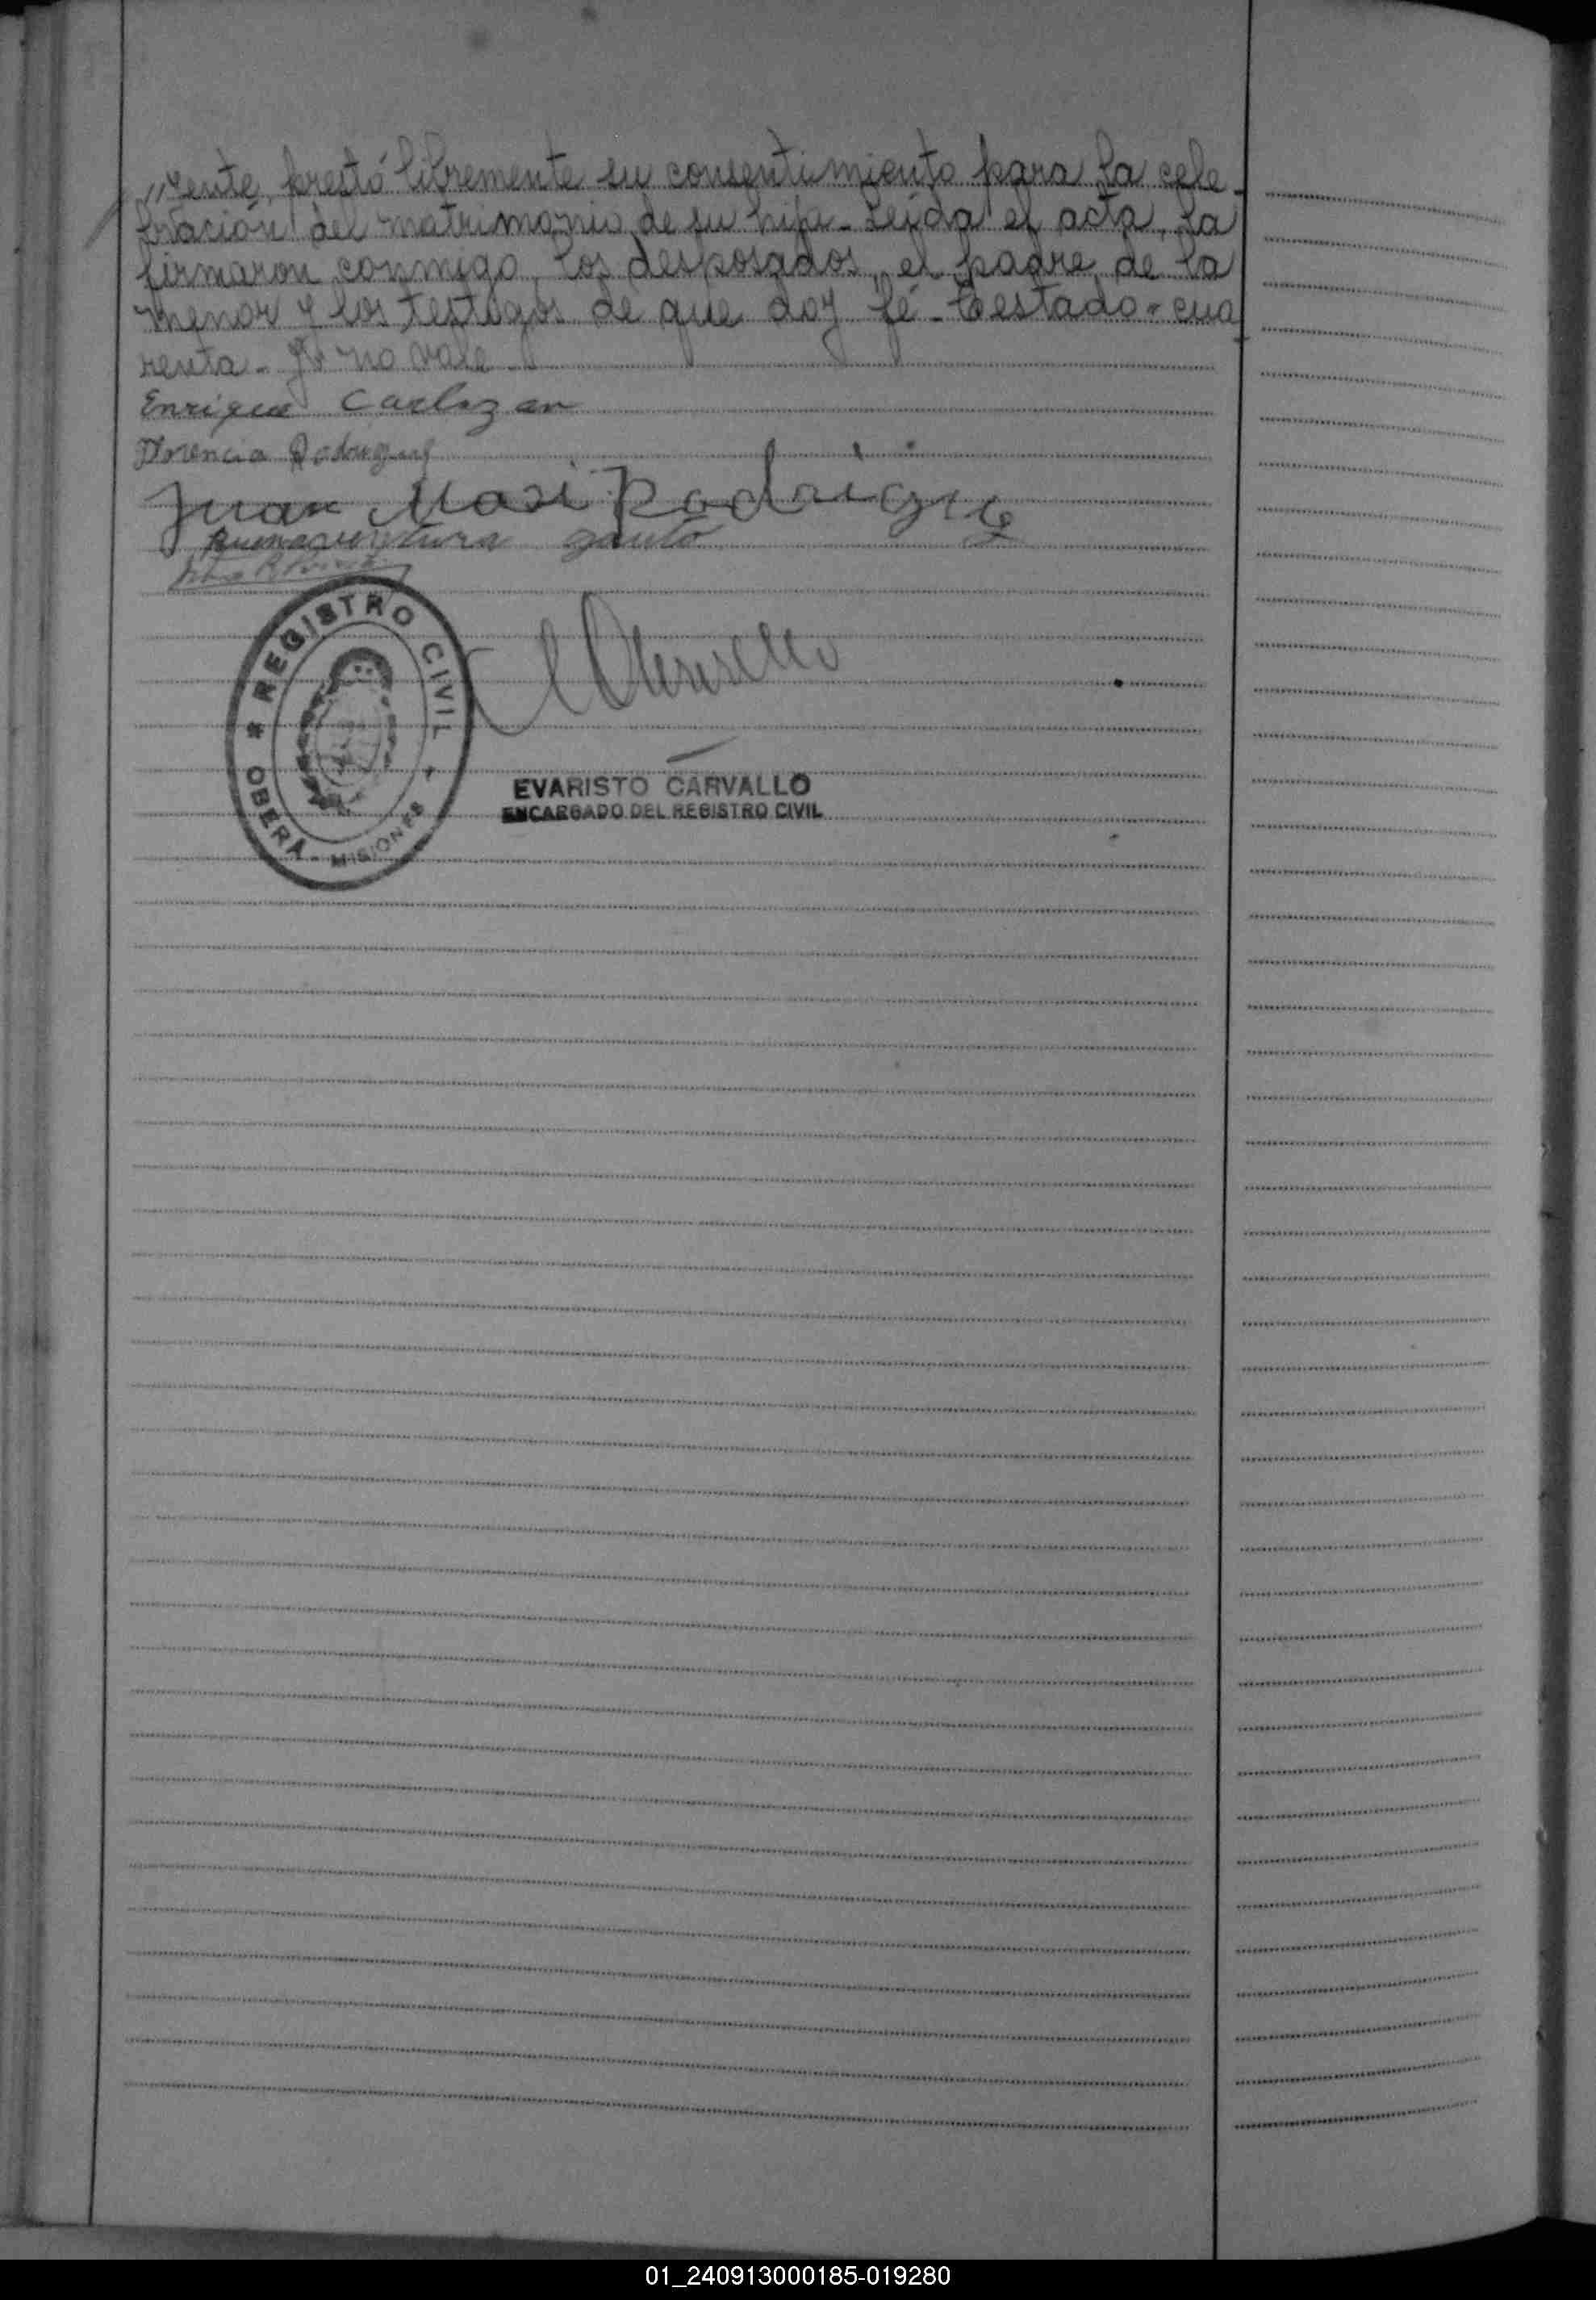 "sente, prestó libremente su consentimiento para la cele-
bración del matrimonio de su hija- Leída el acta, la
firmaron conmigo, los desposados, el padre de la
menor y los testigos de que doy fé- Testado- cua
renta- no vale-
Enrique
Florencia Rodriguez
Juan Mari Rodrigue
Buenaventura
REGISTRO CIVIL
OBERA - MISIONES
EVARISTO CARVALLO
ENCARGADO DEL REGISTRO CIVIL
01_240913000185-019280